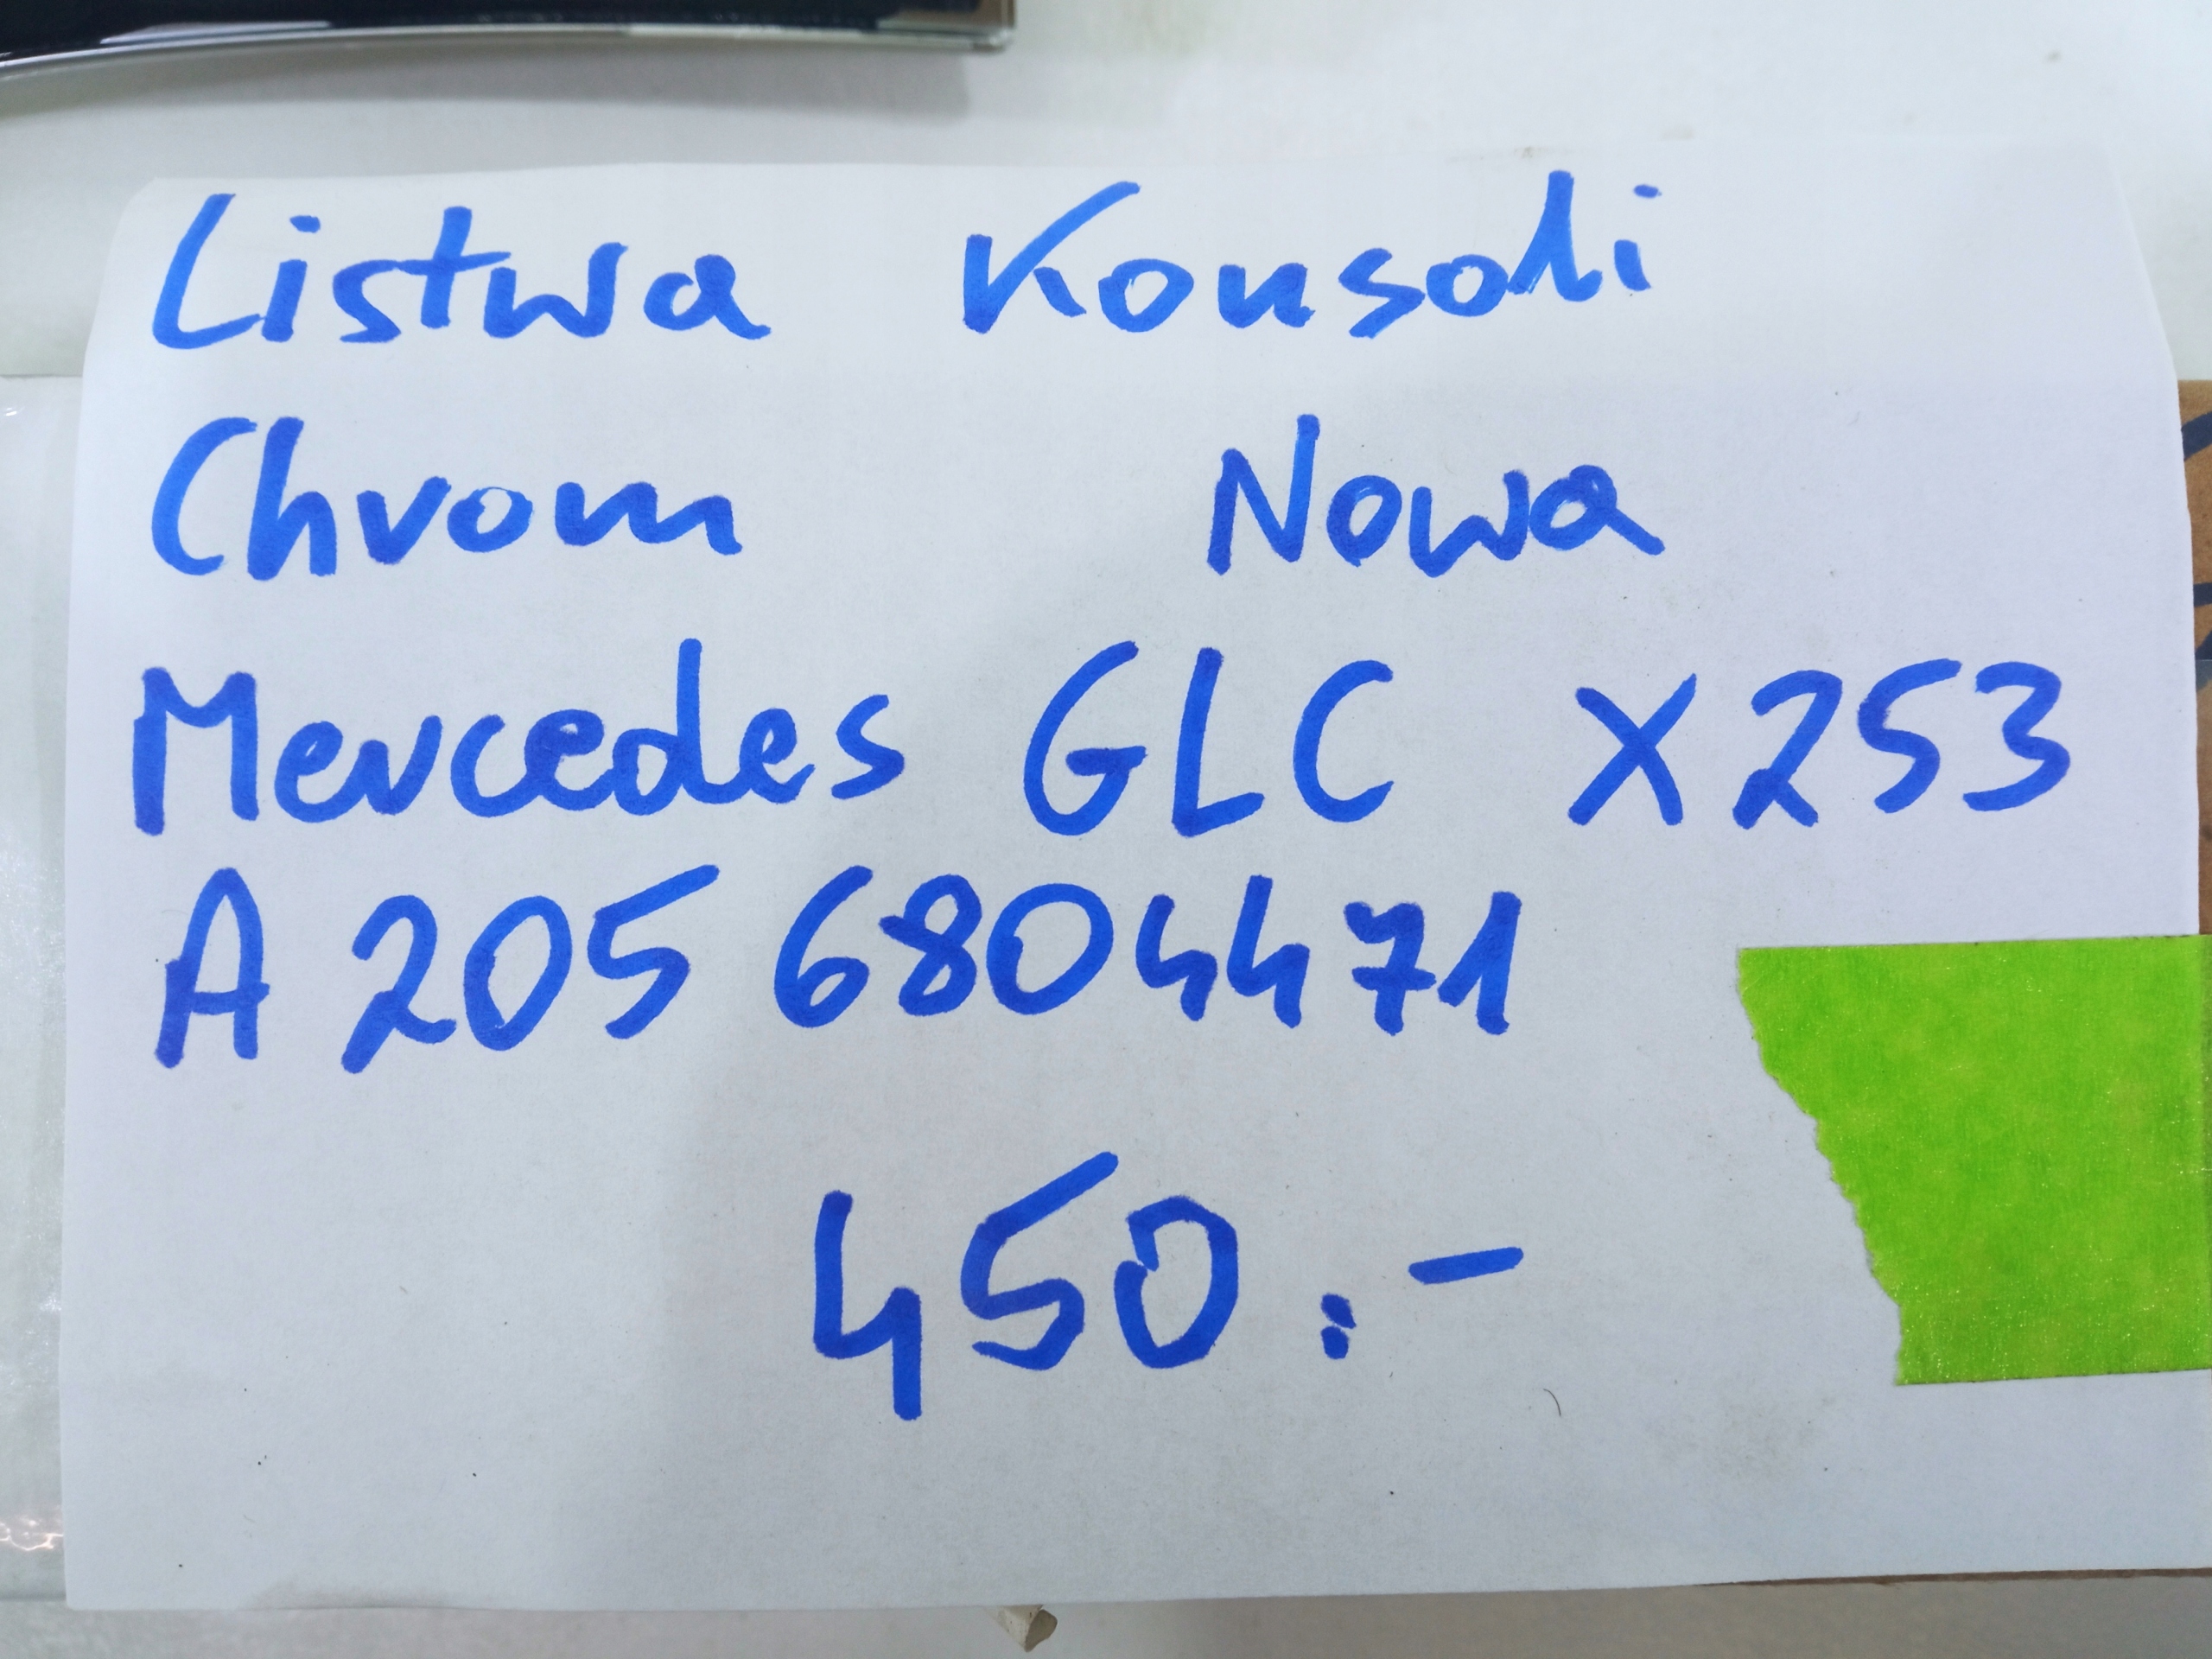 Listwa Konsoli
Chrom Nowa
Mercedes GLC X253
A 205 6804471
450.-